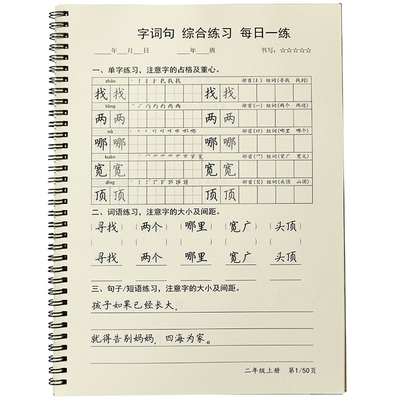 字词句 综合练习 每日一练
____年__月__日 ____年____班 书写:☆☆☆☆☆
一、单字练习，注意字的占格及重心。
zhǎo 部首(扌) 组词(寻找 找到)
找 找 找 找
liǎng 部首(一) 组词(两个 两边)
两 两 两 两
nǎ 部首(口) 组词(哪里 哪个)
哪 哪 哪 哪
kuān 部首(宀) 组词(宽广 宽大)
宽 宽 宽 宽
dǐng 部首(页) 组词(头顶 山顶)
顶 顶 顶 顶
二、词语练习，注意字的大小及间距。
寻找 两个 哪里 宽广 头顶
寻找 两个 哪里 宽广 头顶
三、句子/短语练习，注意字的大小及间距。
孩子如果已经长大，
就得告别妈妈，四海为家。
二年级上册 第1/50页